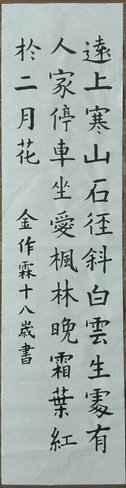 遠上寒山石徑斜白雲生處有
人家停車坐愛楓林晚霜葉紅
於二月花
金作霖十八歲書